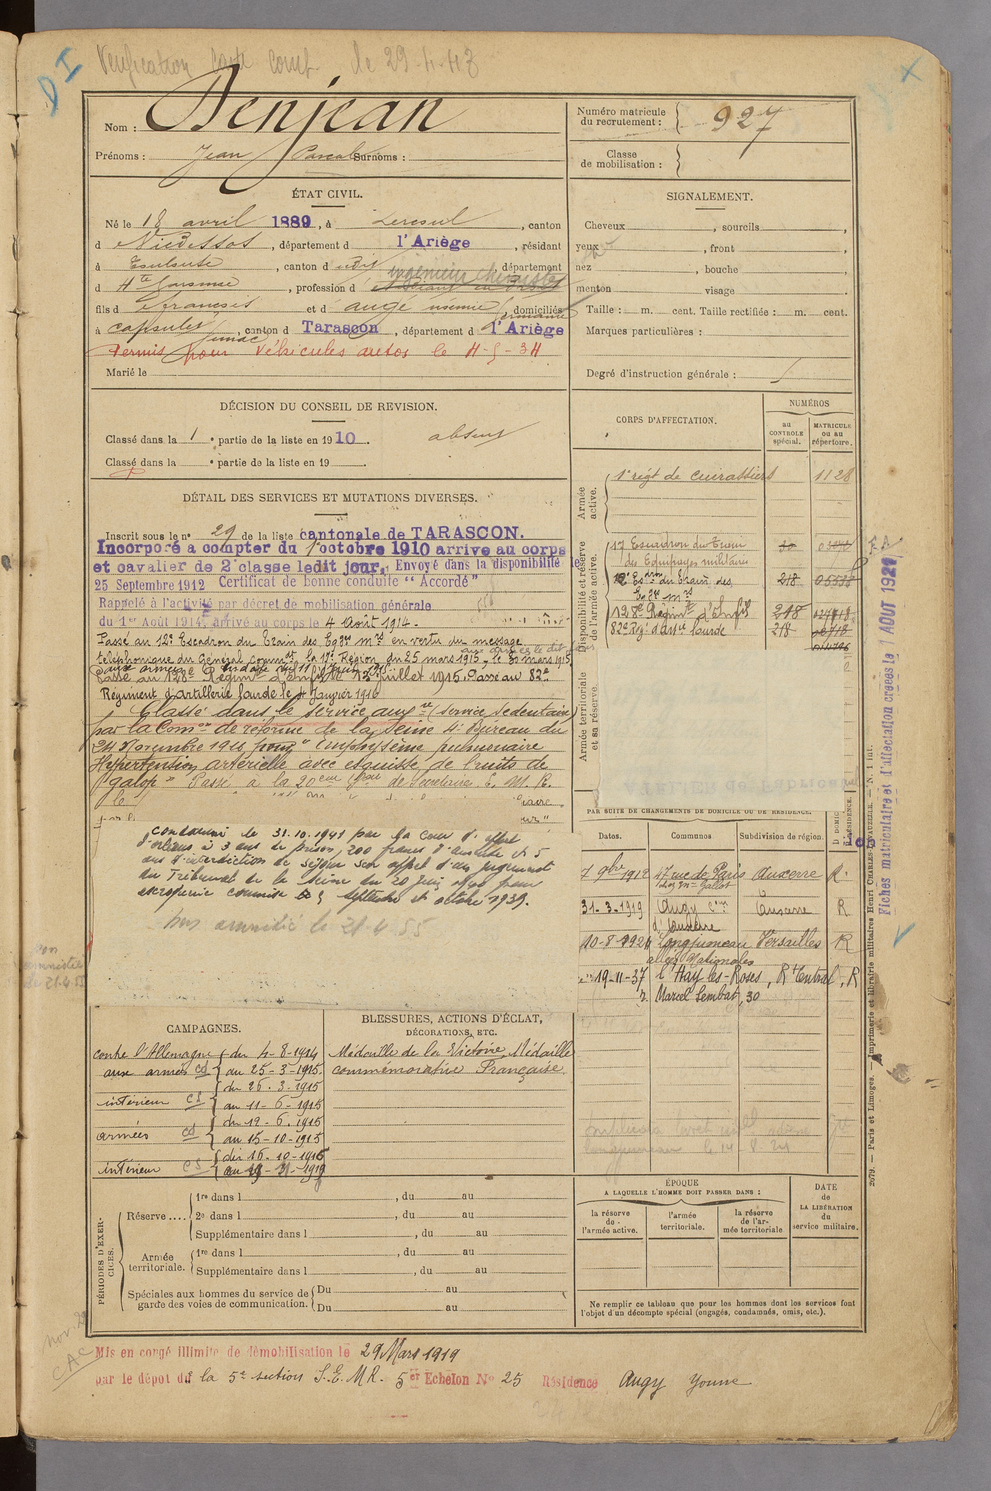 Vérification carte comb. le 29-4-43
D I
Nom : Denjean
Prénoms : Jean Pascal Surnoms :
Numéro matricule du recrutement : 927
Classe de mobilisation :
ÉTAT CIVIL.
Né le 18 avril 1889, à Lercoul, canton
d Vicdessos, département d l'Ariège, résidant
à Toulouse, canton d udit, département
ingénieur chimiste
d Hte Garonne, profession d
fils d e francois et d auge noemie, domiciliés
à capoulet junac, canton d Tarascon, département d l'Ariège
Permis pour véhicules autos le 4-5-34
Marié le
SIGNALEMENT.
Cheveux , sourcils ,
yeux , front ,
nez , bouche ,
menton visage
Taille : m. cent. Taille rectifiée : m. cent.
Marques particulières :
Degré d'instruction générale :
DÉCISION DU CONSEIL DE REVISION.
Classé dans la 1e partie de la liste en 1910. absent
Classé dans la e partie de la liste en 19
DÉTAIL DES SERVICES ET MUTATIONS DIVERSES.
Inscrit sous le no 29 de la liste cantonale de TARASCON.
Incorporé a compter du 1 octobre 1910 arrive au corps
et cavalier de 2e classe ledit jour. Envoyé dans la disponibilité le
25 Septembre 1912 Certificat de bonne conduite "Accordé"
Rappelé à l'activité par décret de mobilisation générale
du 1er Août 1914, arrivé au corps le 4 Août 1914.
Passé au 12e Escadron du Train des Eqges mres en vertu du message
téléphonique du Général commt la 17e Région du 25 mars 1915, le 26 mars 1915
Passé au 128e Régimt d'Infie le 12 juillet 1915. Passé au 82e
Régiment d'artillerie lourde le 4 Janvier 1916
Classé dans le service auxre (service sedentaire)
par la Comon de réforme de la Seine 4e Bureau du
24 Novembre 1916 pour "Emphysème pulmonaire
Hypertention artérielle avec esquisse de bruits de
galop" Passé à la 20eme Son de Secrétaires E. M. R.
le
Condamné le 31.10.1941 par la Cour d'appel
d'orléans à 3 ans de prison, 200 francs d'amende et 5
ans d'interdiction de séjour son appel d'un jugement
du Tribunal de la Seine du 20 Juin 1940 pour
escroquerie commise en septembre et octobre 1939.
non amnistié le 21-4 55
non
amnistié
le 21.4.55
CORPS D'AFFECTATION.
NUMÉROS
au CONTROLE spécial.
MATRICULE OU AU répertoire.
Armée active.
1er régt de cuirassiers 1128
Disponibilité et réserve de l'armée active.
17 Escadron du Train
des Equipages militaires
12e Eson du train des 218
Eqges mres
128e Régimt d'Infie 218
82e Rgt d'artie lourde 218
Armée territoriale et sa réserve.
Fiches matriculaire et d'affectation créées le 1 AOUT 1921
PAR SUITE DE CHANGEMENTS DE DOMICILE OU DE RÉSIDENCE.
Dates. Communes Subdivision de région.
7 9bre 1912 47 rue de Paris Auxerre R.
31-3-1919 Augy Con Auxerre R
d'Auxerre
10-8-1924 Longjumeau Versailles R
19-11-37 L'Hay les-Roses, R. Central, R
r. Marcel Sembat, 30
CAMPAGNES.
contre l'Allemagne du 4-8-1914
aux armées CD au 25-3-1915
du 26.3.1915
intérieur CS au 11-6-1915
du 12-6.1915
armées CD au 15-10-1915
du 16.10-1915
intérieur CS
BLESSURES, ACTIONS D'ÉCLAT,
DÉCORATIONS, ETC.
Médailles de la Victoire, Médaille
commémorative Française.
PÉRIODES D'EXERCICES.
Réserve .... 1re dans l , du au
2e dans l , du au
Supplémentaire dans l , du au
Armée territoriale. 1re dans l , du au
Supplémentaire dans l , du au
Spéciales aux hommes du service de garde des voies de communication. Du au
Du au
ÉPOQUE
A LAQUELLE L'HOMME DOIT PASSER DANS :
la réserve de l'armée active.
l'armée territoriale.
la réserve de l'armée territoriale.
DATE de LA LIBÉRATION du service militaire.
Ne remplir ce tableau que pour les hommes dont les services font
l'objet d'un décompte spécial (engagés, condamnés, omis, etc.).
2079. — Paris et Limoges. — Imprimerie et librairie militaires Henri CHARLES-LAVAUZELLE. — N. 1 int.
Mis en congé illimité de démobilisation le 29 Mars 1919
par le dépot du la 5e section S.E.M.R. 5er Echelon No 25 Résidence Augy Yonne
CAC